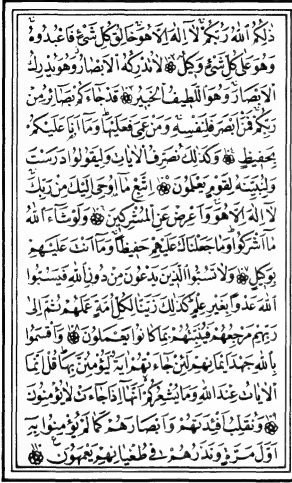 ذٰلِكُمُ اللّٰهُ رَبُّكُمْ لَٓا اِلٰهَ اِلَّا هُوَ خَالِقُ كُلِّ شَىْءٍ فَاعْبُدُوهُ
وَهُوَ عَلٰى كُلِّ شَىْءٍ وَكِيلٌ ۞ لَا تُدْرِكُهُ الْاَبْصَارُ وَهُوَ يُدْرِكُ
الْاَبْصَارَ وَهُوَ اللَّطِيفُ الْخَبِيرُ ۞ قَدْ جَٓاءَكُمْ بَصَٓائِرُ مِنْ
رَبِّكُمْ فَمَنْ اَبْصَرَ فَلِنَفْسِهِ وَمَنْ عَمِىَ فَعَلَيْهَا وَمَٓا اَنَا عَلَيْكُمْ
بِحَفِيظٍ ۞ وَكَذٰلِكَ نُصَرِّفُ الْاٰيَاتِ وَلِيَقُولُوا دَرَسْتَ
وَلِنُبَيِّنَهُ لِقَوْمٍ يَعْلَمُونَ ۞ اِتَّبِعْ مَٓا اُوحِىَ اِلَيْكَ مِنْ رَبِّكَ
لَٓا اِلٰهَ اِلَّا هُوَ وَاَعْرِضْ عَنِ الْمُشْرِكِينَ ۞ وَلَوْ شَٓاءَ اللّٰهُ
مَٓا اَشْرَكُوا وَمَا جَعَلْنَاكَ عَلَيْهِمْ حَفِيظًا وَمَٓا اَنْتَ عَلَيْهِمْ
بِوَكِيلٍ ۞ وَلَا تَسُبُّوا الَّذِينَ يَدْعُونَ مِنْ دُونِ اللّٰهِ فَيَسُبُّوا
اللّٰهَ عَدْوًا بِغَيْرِ عِلْمٍ كَذٰلِكَ زَيَّنَّا لِكُلِّ اُمَّةٍ عَمَلَهُمْ ثُمَّ اِلٰى
رَبِّهِمْ مَرْجِعُهُمْ فَيُنَبِّئُهُمْ بِمَا كَانُوا يَعْمَلُونَ ۞ وَاَقْسَمُوا
بِاللّٰهِ جَهْدَ اَيْمَانِهِمْ لَئِنْ جَٓاءَتْهُمْ اٰيَةٌ لَيُؤْمِنُنَّ بِهَا قُلْ اِنَّمَا
الْاٰيَاتُ عِنْدَ اللّٰهِ وَمَا يُشْعِرُكُمْ اَنَّهَٓا اِذَا جَٓاءَتْ لَا يُؤْمِنُونَ
۞ وَنُقَلِّبُ اَفْئِدَتَهُمْ وَاَبْصَارَهُمْ كَمَا لَمْ يُؤْمِنُوا بِهِ
اَوَّلَ مَرَّةٍ وَنَذَرُهُمْ فِى طُغْيَانِهِمْ يَعْمَهُونَ ۞